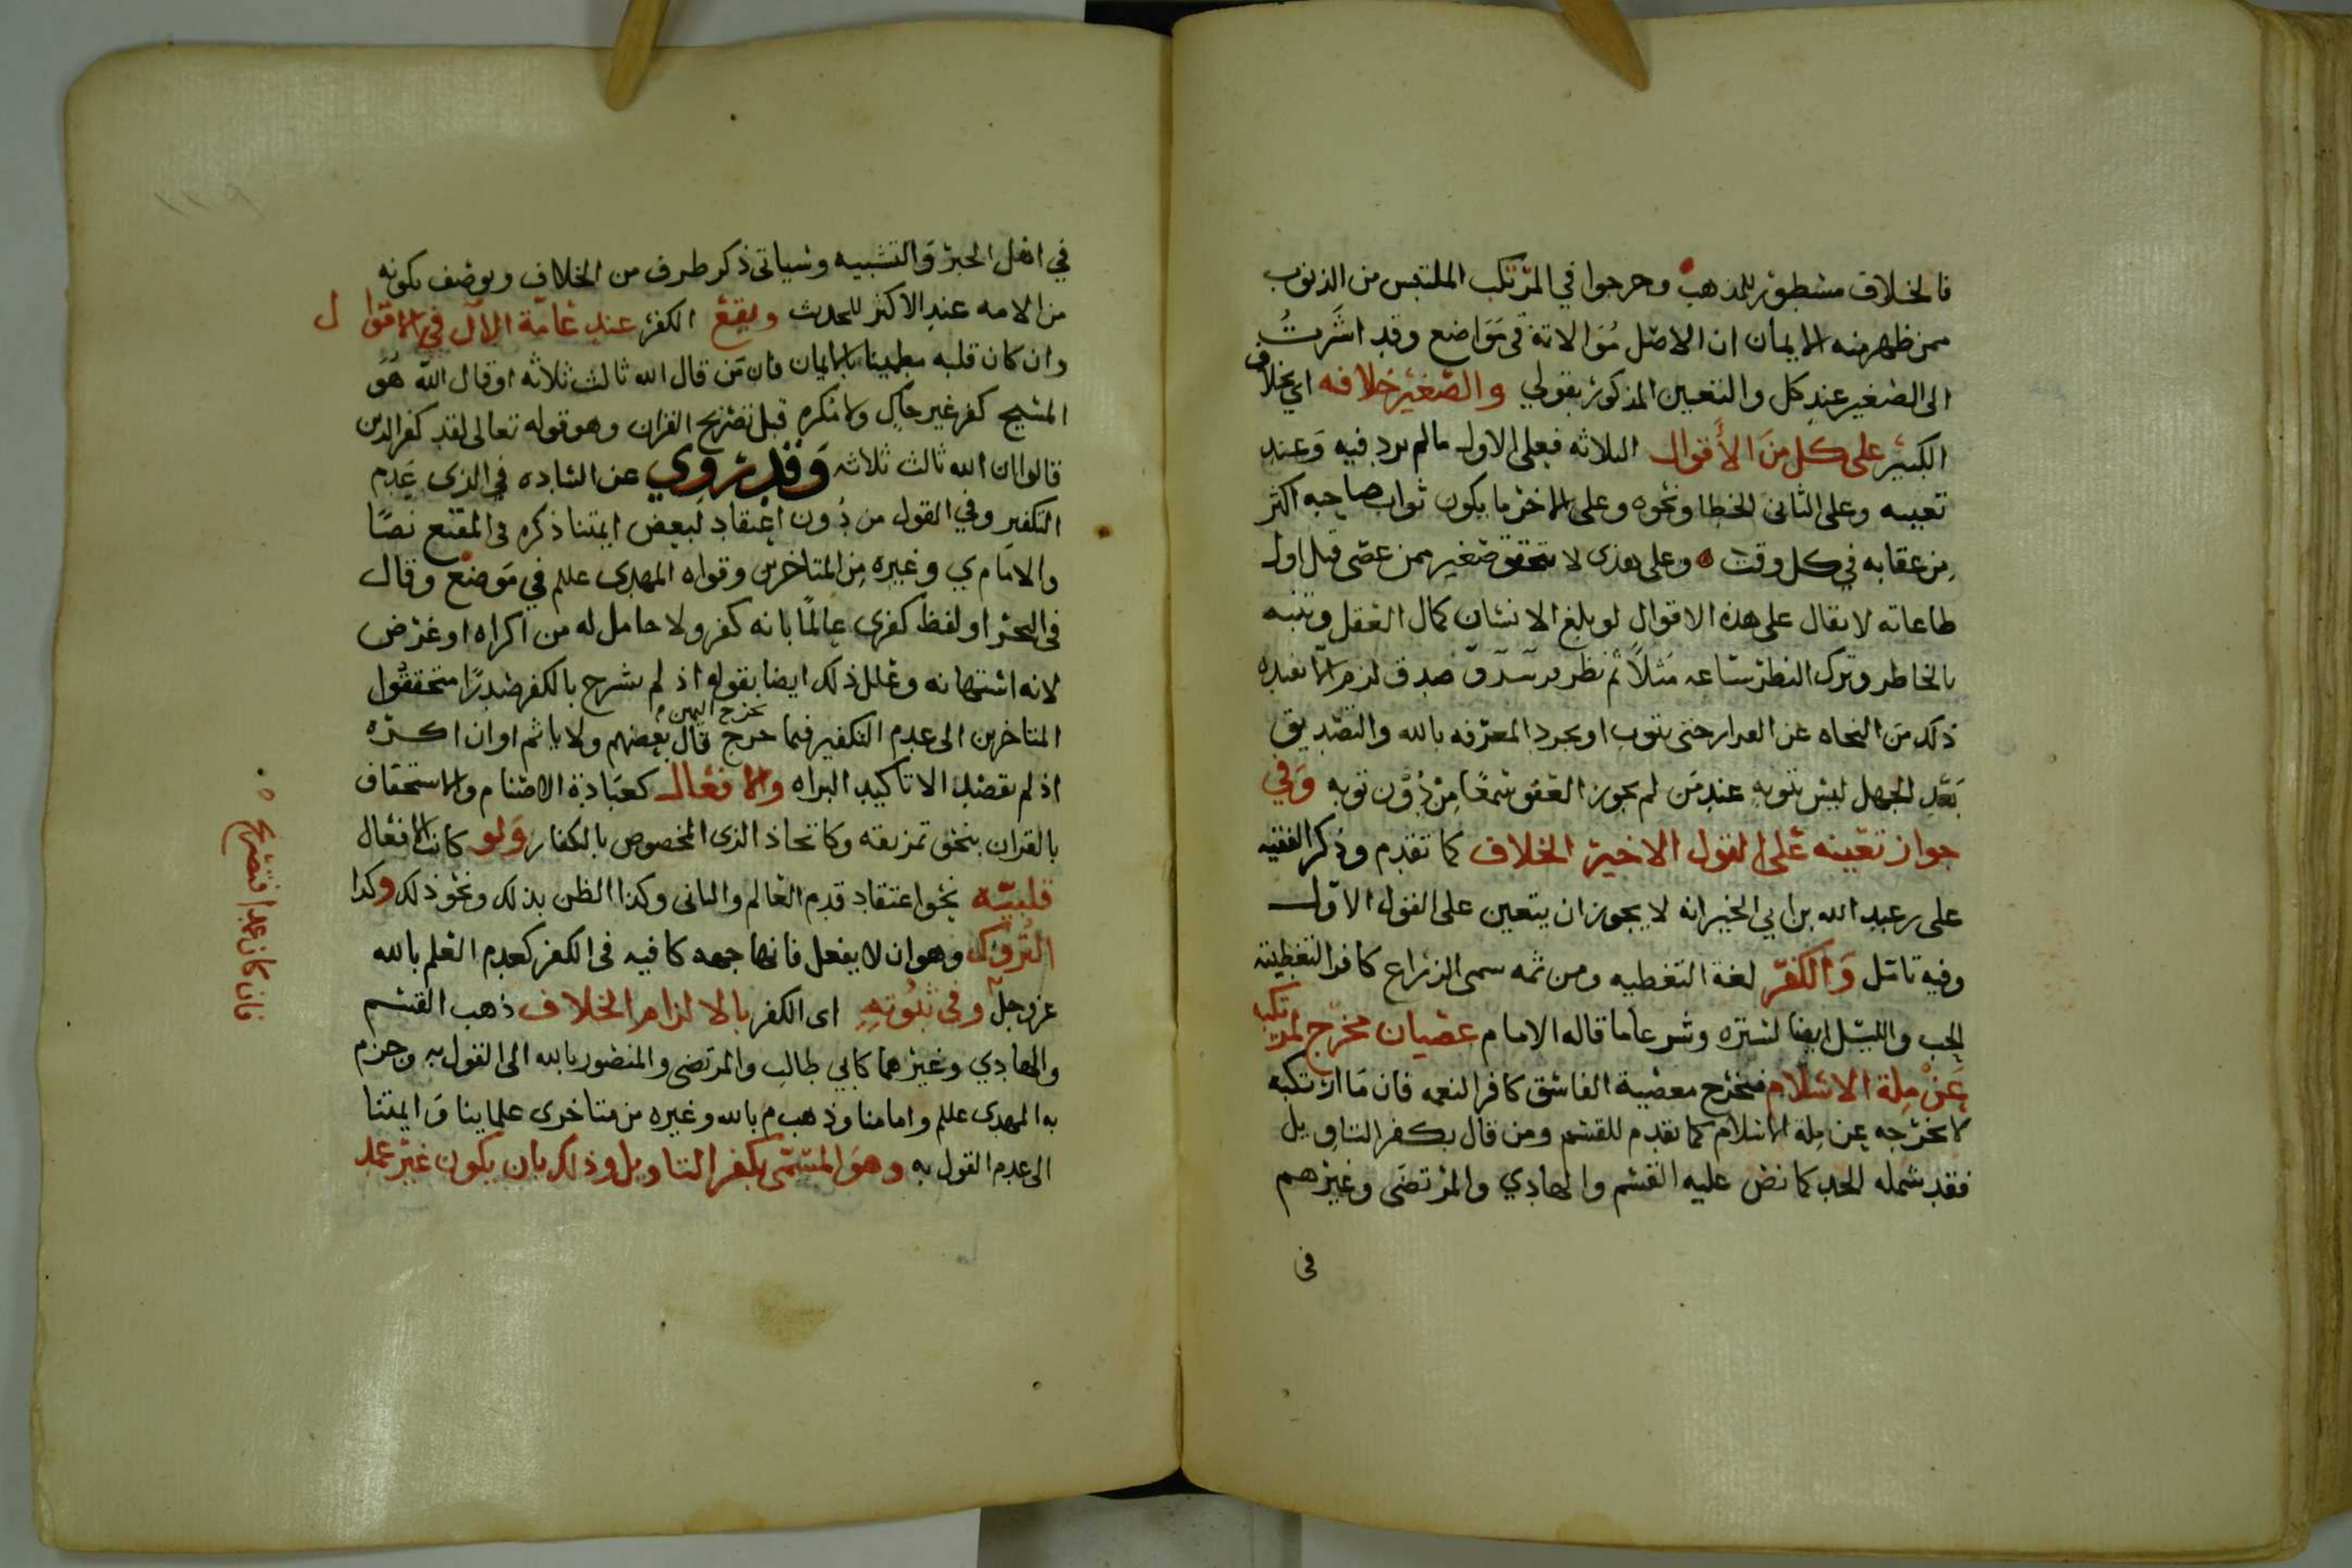 فالخلاف مسطور للمذهب وخرجوا في المرتكب الملتبس من الذنوب
ممن ظهر منه الايمان ان الاصل موالاته في مواضع وقد اشرت
الى الصغير عند كل والتعيين المذكور بقولي والصغير خلافه اي بخلاف
الكبير على كل من الأقوال الثلاثه فعلى الاول مالم يرد فيه وعند
تعيينه وعلى الثاني الخطا ونحوه وعلى الاخر ما يكون ثواب صاحبه اكثر
من عقابه في كل وقت وعلى هذى لا يتحقق صغير ممن عصى قبل اول
طاعاته لا يقال على هذه الاقوال لو بلغ الانسان كمال العقل وتنبه
بالخاطر وترك النظر ساعه مثلاً ثم نظر صدق لزم الا يفيده
ذلك من النجاه عن حتى يتوب او مجرد المعرفه بالله والتصديق
بعد الجهل ليس بتوبه عند من لم يجوز العفو سمعا من دون توبه وفي
جواز تعيينه على القول الاخير الخلاف كما تقدم وذكر الفقيه
على بن عبد الله بن ابي الخير انه لا يجوز ان يتعين على القول الاول
وفيه تامل والكفر لغة التغطيه ومن ثمه سمى الزراع كافرا لتغطيته
الحب والليل ايضا لستره وشرعا ما قاله الامام عصيان مخرج لمرتكبه
عن ملة الاسلام فتخرج معصية الفاسق كافر النعمه فان ما ارتكبه
لا يخرجه عن ملة الاسلام كما تقدم للقسم ومن قال بكفر التاويل
فقد شمله الحد كما نص عليه القسم والهادي والمرتضى وغيرهم
في
في اهل الجبر والتشبيه وسياتى ذكر طرف من الخلاف ويوصف بكونه
من الامه عند الاكثر للحدث ويقع الكفر عند عامة الآل في الاقوال
وان كان قلبه مطمينا بالايمان فان من قال الله ثالث ثلاثه او قال الله هو
المسيح كفر غير حاكٍ ولا مكره قبل تصريح القران وهو قوله تعالى لقد كفر الذين
قالوا ان الله ثالث ثلاثه وقد روي عن الساده في الذي عدم
التكفير وفي القول من دون اعتقاد لبعض ايمتنا ذكره في المقنع نصًا
والامام ي وغيره من المتاخرين وقواه المهدى علم في موضع وقال
في البحر او لفظ كفرى عالمًا بانه كفر ولا حامل له من اكراه او غرض
لانه استهانه وعلل ذلك ايضا بقوله اذ لم يشرح بالكفر صدرًا متحققوا
المتاخرين الى عدم التكفير فيما خرج مخرج اليمين قال بعضهم ولا ياثم او ان اكره
اذ لم يقصد الا تاكيد البراه والافعال كعبادة الاصنام والاستخفاف
بالقران بنحو تمزيقه وكاتخاذ الزى المخصوص بالكفار ولو كانت الافعال
قلبيه نحو اعتقاد قدم العالم والثاني وكذا الظن بذلك ونحو ذلك وكذا
التروك وهو ان لا يفعل فانها جهه كافيه في الكفر كعدم العلم بالله
عز وجل وفي ثبوته اى الكفر بالالزام الخلاف ذهب القسم
والهادي وغيرهما كابي طالب والمرتضى والمنصور بالله الى القول به وجزم
به المهدى علم وامامنا وذهب م بالله وغيره من متاخرى علماينا وايمتنا
الى عدم القول به وهو المسمى بكفر التاويل وذلك بان يكون غير عمد
فان كان عمدا فتصريح